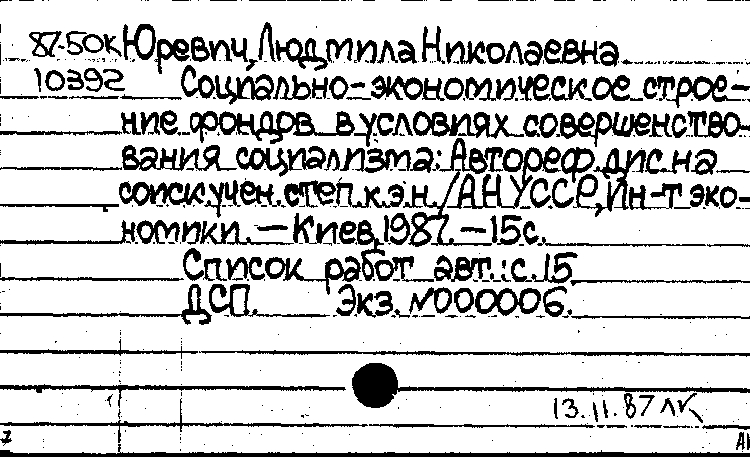 87-50К Юревич, Людмила Николаевна
10392 Социально-экономическое строе-
ние фондов в условиях совершенство-
вания социализма: Автореф. дис. на
соиск. учен. степ. к. э. н. / АН УССР, Ин-т эко-
номики. — Киев, 1987. — 15 с.
Список работ авт.: с. 15
ДСП. Экз. №000006.
13.11.87 ЛК